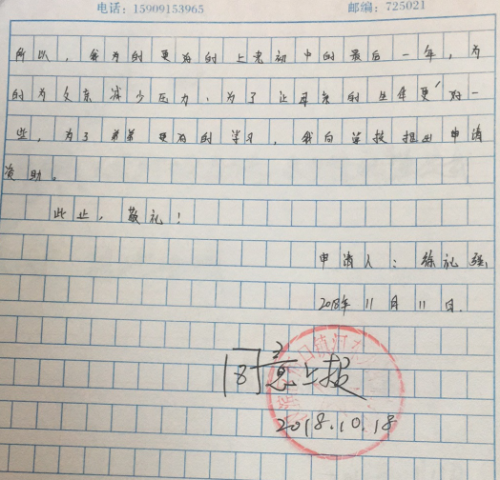 电话：15909153965 邮编：725021
所以，我为的更好的上完初中的最后一年，为
的为父亲减少压力、为了让母亲的生年更好一
些，为了弟弟更好的学习，我向学校提出申请
资助。
此止，敬礼！
申请人：徐礼强
2018年11月11日.
同意上报
2018.10.18